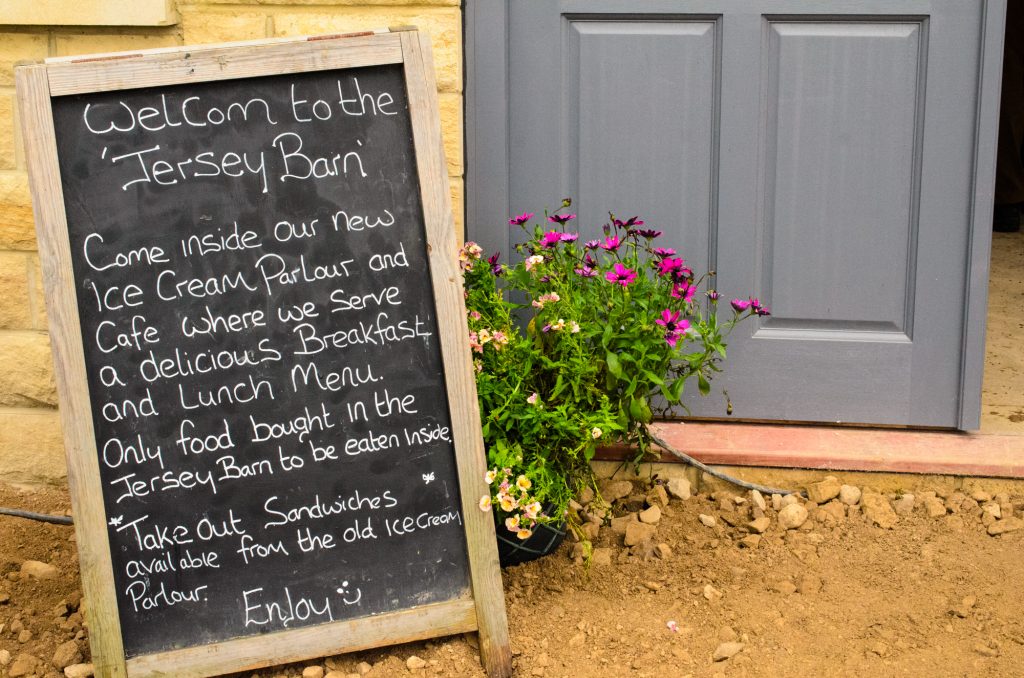 Welcom to the
'Jersey Barn'
Come inside our new
Ice Cream Parlour and
Cafe where we serve
a delicious Breakfast
and Lunch Menu.
Only food bought In the
Jersey Barn to be eaten Inside.
Take Out Sandwiches
available from the old Ice Cream
Parlour.
Enjoy